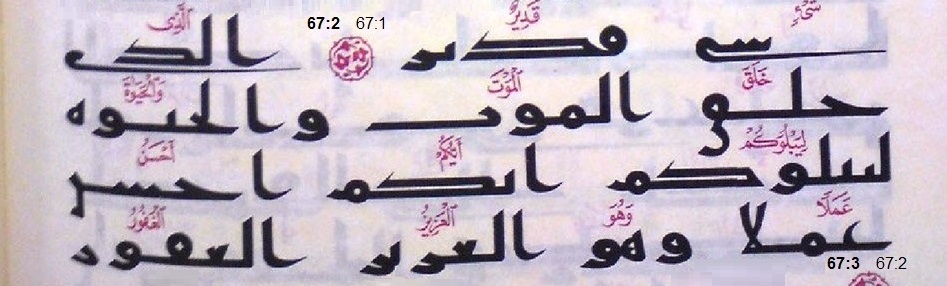 شَىْءٍ قَدِيرٌ 67:1 67:2 ٱلَّذِى
سى ڡدىر الدى
خَلَقَ ٱلْمَوْتَ وَٱلْحَيَوٰةَ
حلٯ الموٮ والحىوه
لِيَبْلُوَكُمْ أَيُّكُمْ أَحْسَنُ
لىٮلوكم اىكم احسں
عَمَلًا وَهُوَ ٱلْعَزِيزُ ٱلْغَفُورُ
عملا وهو العرىر العڡور
67:2 67:3